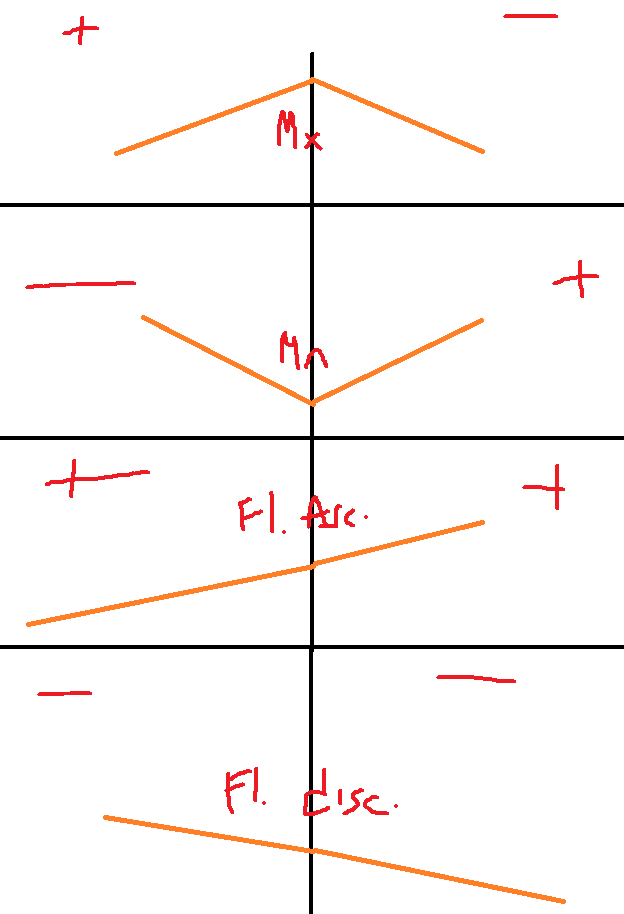 + —
Mx
— +
Mn
+ +
Fl. Asc.
— —
Fl. disc.